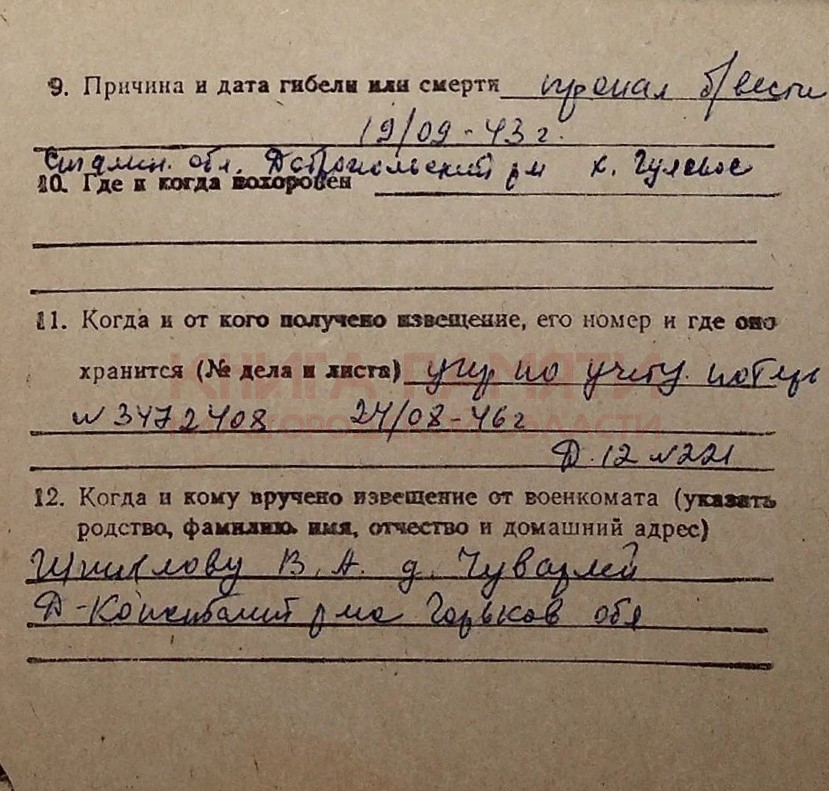 9. Причина и дата гибели или смерти пропал б/вести
19/09-43 г.
Сталин. обл. Добропольский р-н х. Гулевое
10. Где и когда похоронен
11. Когда и от кого получено извещение, его номер и где оно
хранится (№ дела и листа) упр по учету потерь
КНИГА ПАМЯТИ
НИЖЕГОРОДСКОЙ ОБЛАСТИ
№ 3472408 24/08-46 г
Д. 12 № 221
12. Когда и кому вручено извещение от военкомата (указать
родство, фамилию, имя, отчество и домашний адрес)
В. А. д. Чуварлей
Д-Константин р-на Горьков обл